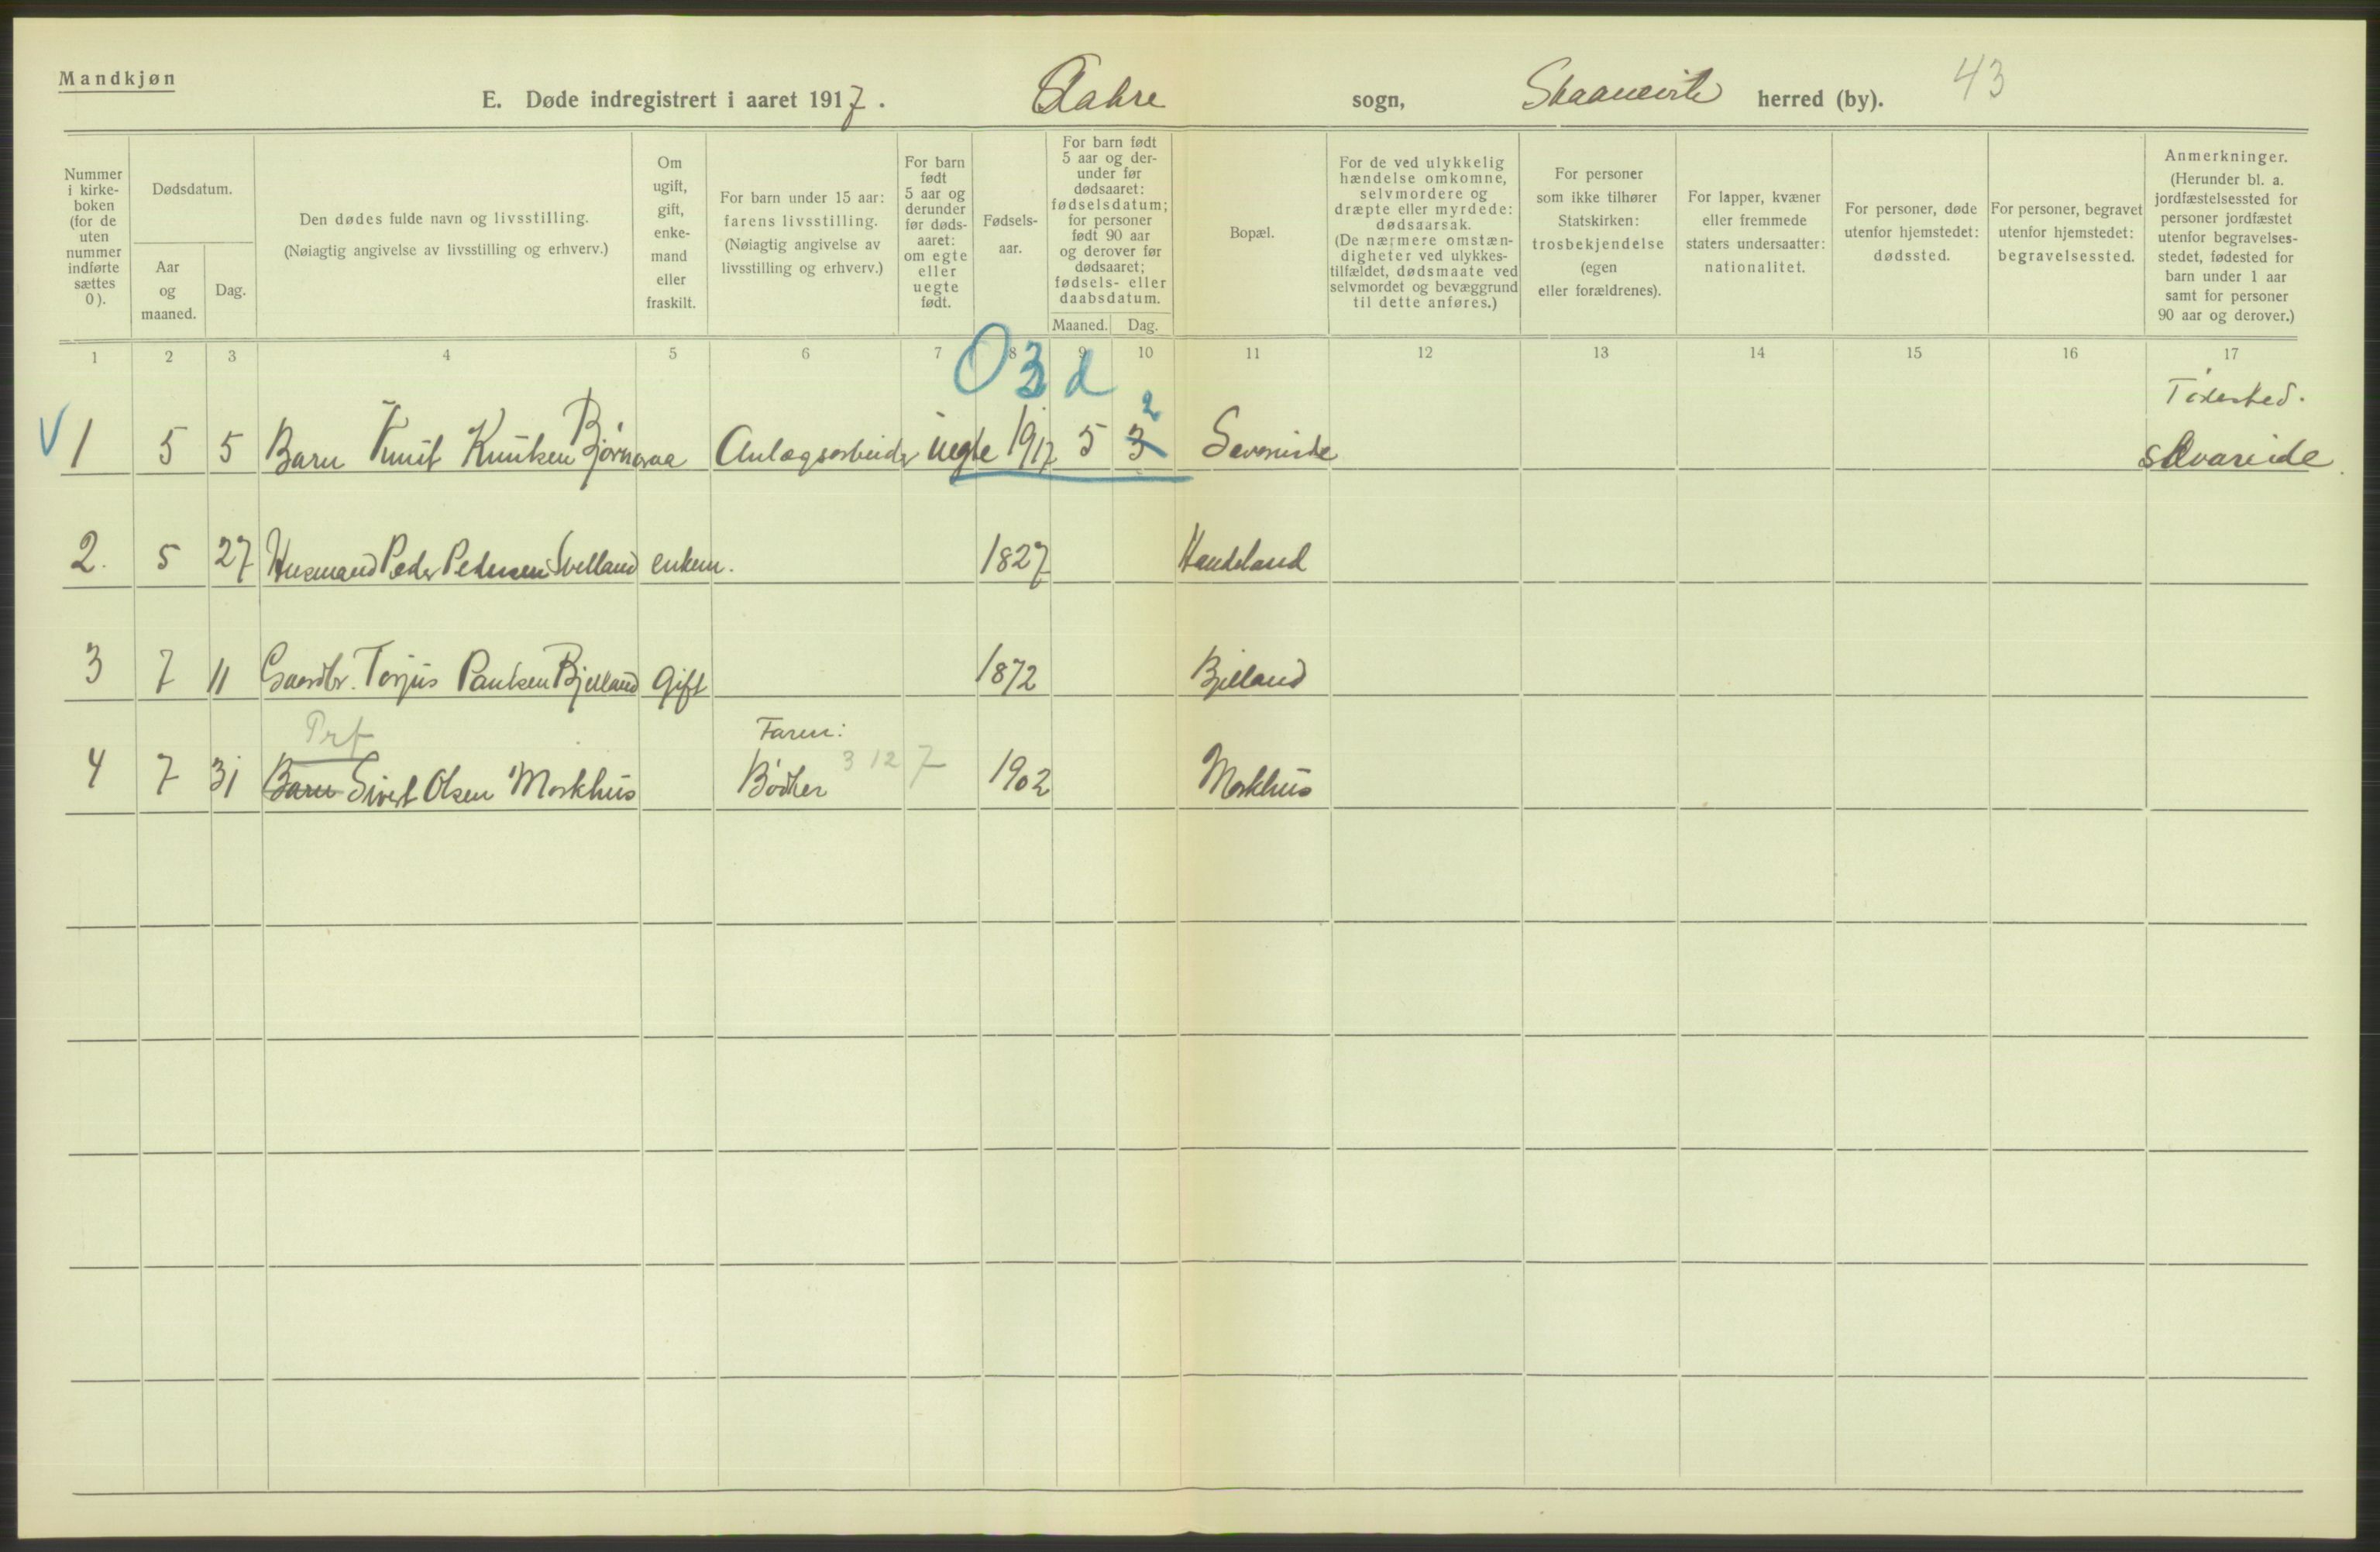 Mandkjøn
E. Døde indregistrert i aaret 1917. Aakre sogn, Skaanevik herred (by). 43
Nummer i kirkeboken (for de uten nummer indførte sættes 0).
Dødsdatum.
Aar og maaned.
Dag.
Den dødes fulde navn og livsstilling.
(Nøiagtig angivelse av livsstilling og erhverv.)
Om ugift, gift, enkemand eller fraskilt.
For barn under 15 aar: farens livsstilling.
(Nøiagtig angivelse av livsstilling og erhverv.)
For barn født 5 aar og derunder før dødsaaret: om egte eller uegte født.
Fødselsaar.
For barn født 5 aar og derunder før dødsaaret: fødselsdatum; for personer født 90 aar og derover før dødsaaret; fødsels- eller daabsdatum.
Maaned. Dag.
Bopæl.
For de ved ulykkelig hændelse omkomne, selvmordere og dræpte eller myrdede: dødsaarsak.
(De nærmere omstændigheter ved ulykkestilfældet, dødsmaate ved selvmordet og bevæggrund til dette anføres.)
For personer som ikke tilhører Statskirken: trosbekjendelse (egen eller forældrenes).
For lapper, kvæner eller fremmede staters undersaatter: nationalitet.
For personer, døde utenfor hjemstedet: dødssted.
For personer, begravet utenfor hjemstedet: begravelsessted.
Anmerkninger.
(Herunder bl. a. jordfæstelsessted for personer jordfæstet utenfor begravelsesstedet, fødested for barn under 1 aar samt for personer 90 aar og derover.)
1 2 3 4 5 6 7 8 9 10 11 12 13 14 15 16 17
0 3 d
2
Födested.
V 1 5 5 Barn Knut Knutsen Bjørnaraa Anlægsarbeider uegte 1917 5 3
2. 5 27 Husmand Peder Pedersen enkem. 1827 Handeland
3 7 11 Gaardbr. Torjus Paulsen Bjelland Gift 1872 Bjelland
Faren:
4 7 31 Barn Sivert Olsen Moskhus Bødker 3 12 7 1902 Moskhus